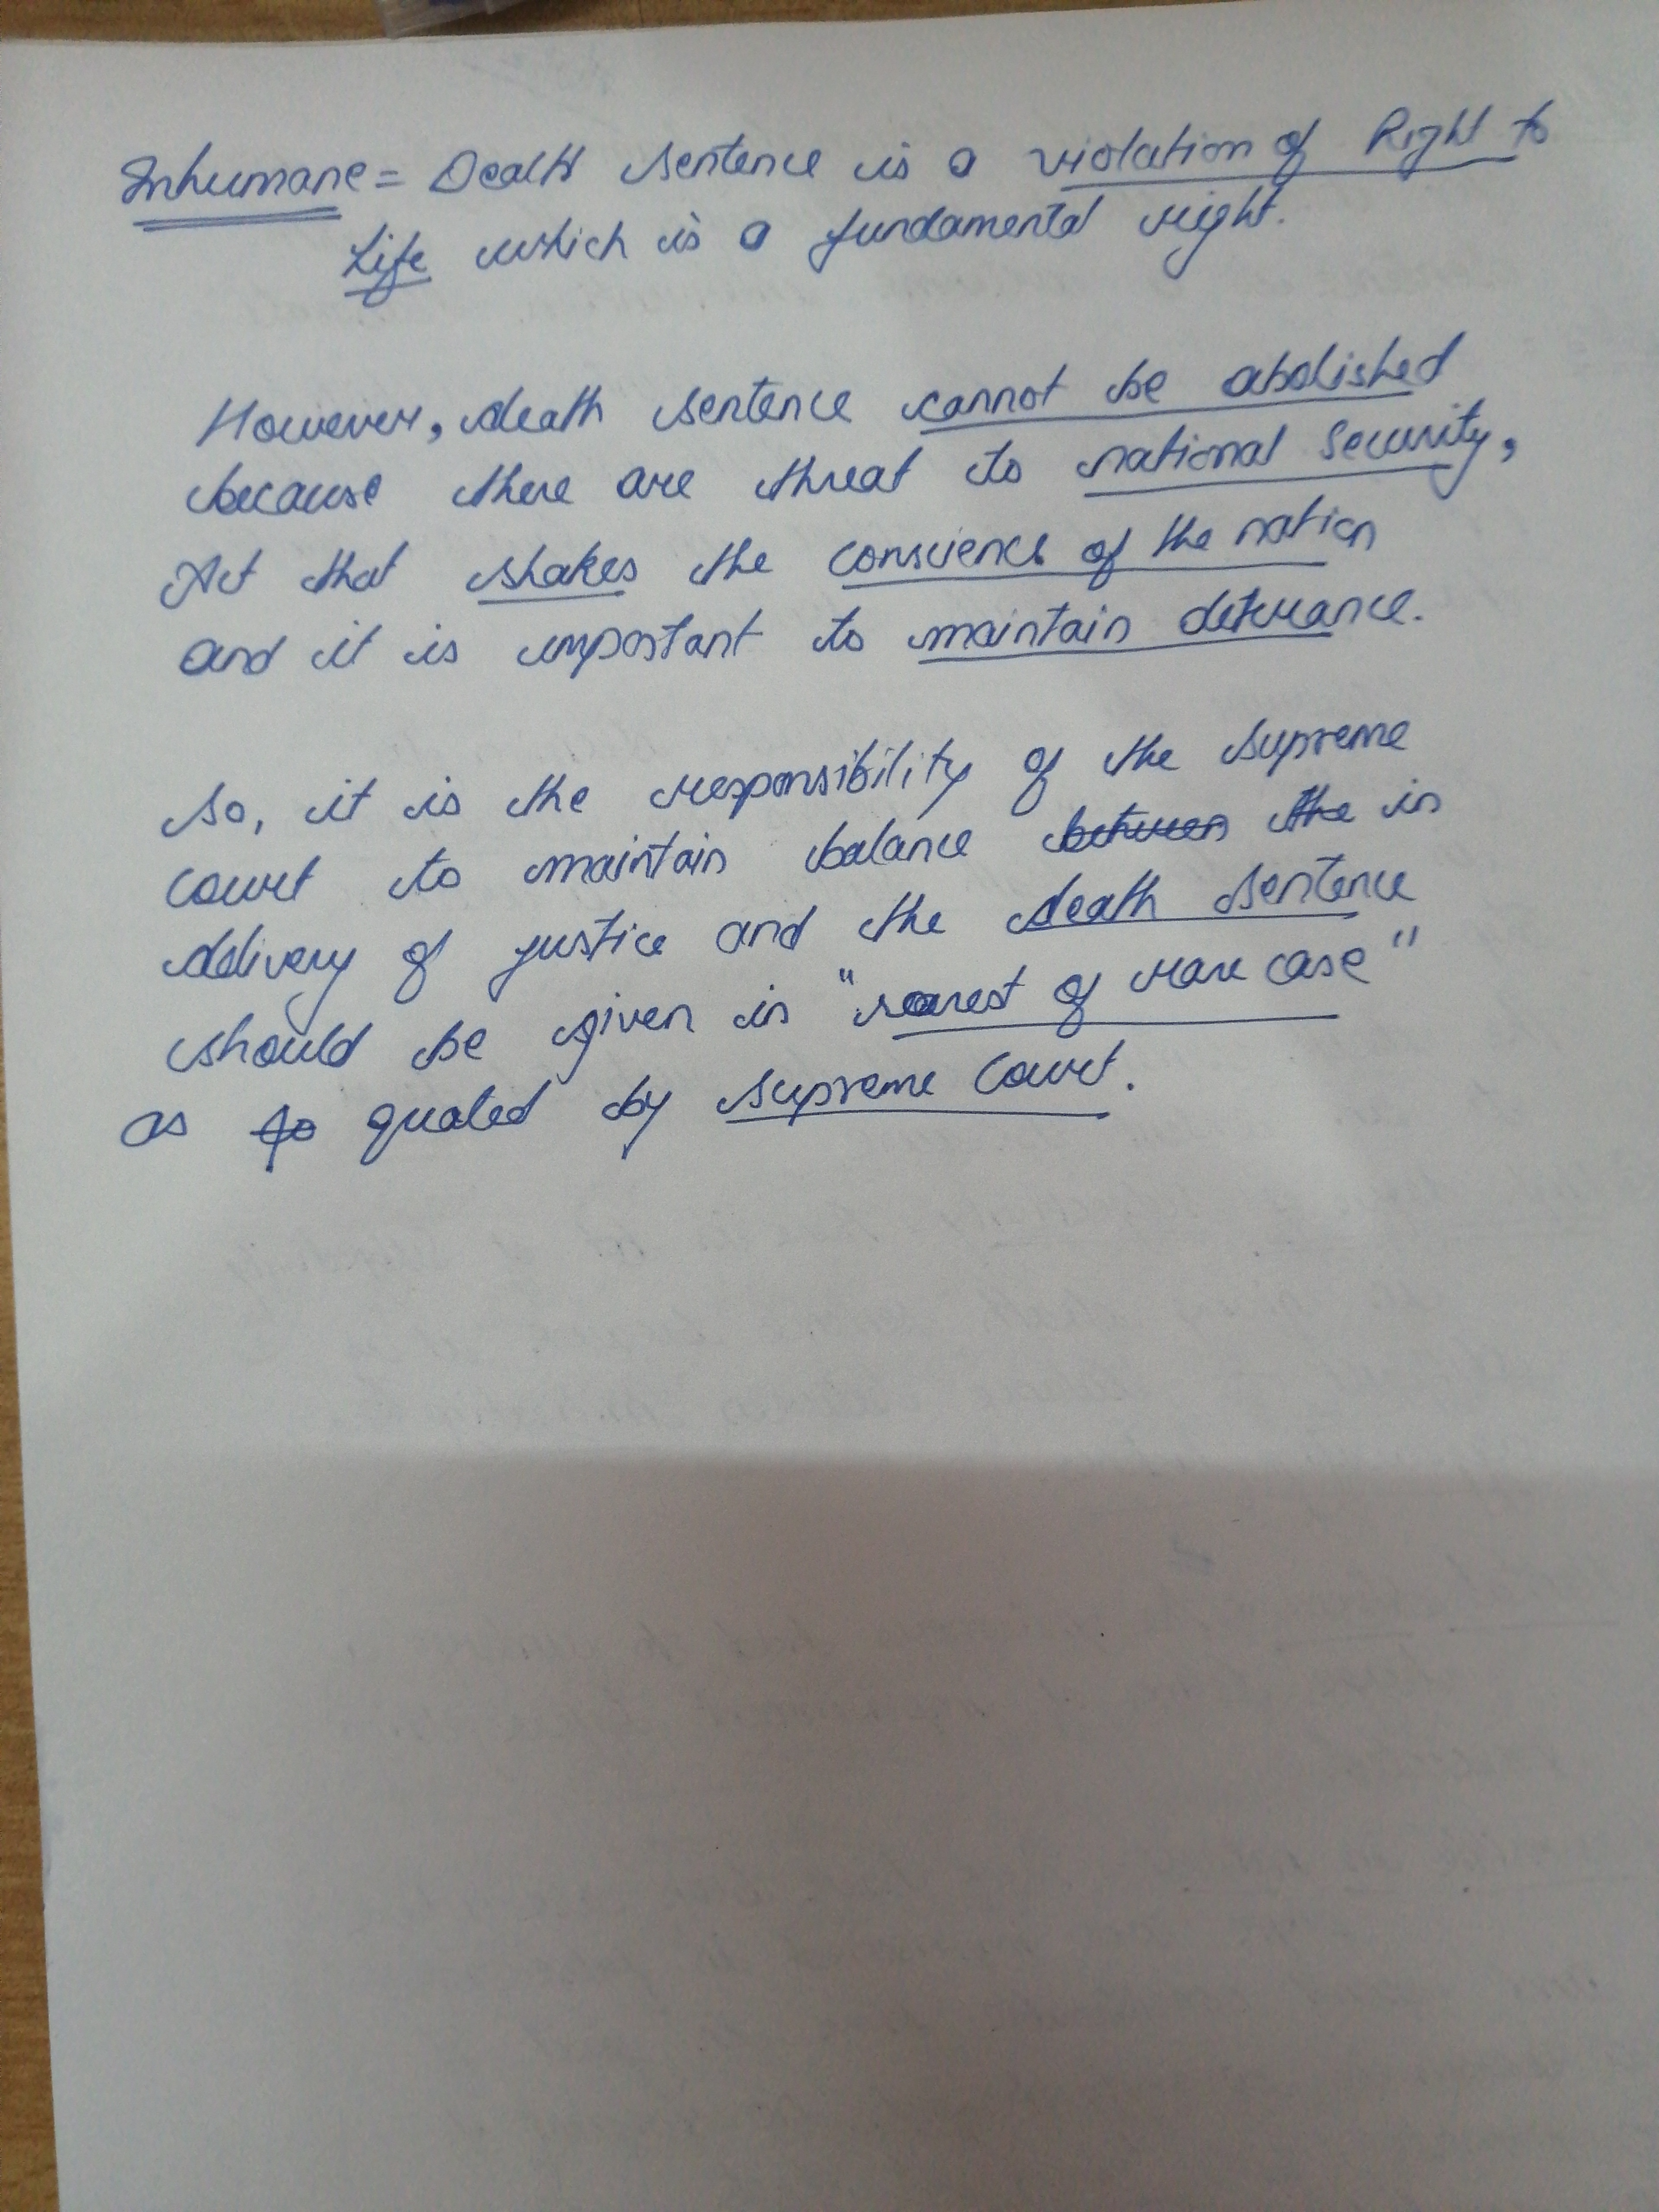 Inhumane = Death sentence is a violation of Right to
Life which is a fundamental right.
However, death sentence cannot be abolished
because there are threat to national security,
Act that shakes the conscience of the nation
and it is important to maintain deterrance.
So, it is the responsibility of the supreme
court to maintain balance between the in
delivery of justice and the death sentence
should be given in "rarest of rare case"
as quoted by supreme court.